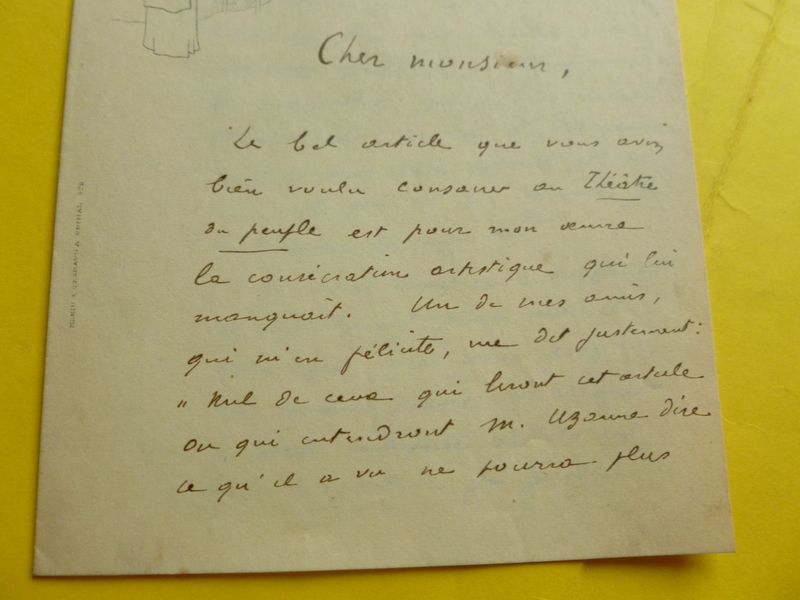 Cher monsieur,
Le bel article que vous avez
bien voulu consacrer au Théâtre
du peuple est pour mon œuvre
la consécration artistique qui lui
manquait. Un de mes amis,
qui m'en félicite, me dit justement:
" Nul de ceux qui liront cet article
ou qui entendront M. Uzanne dire
ce qu'il a vu ne pourra plus